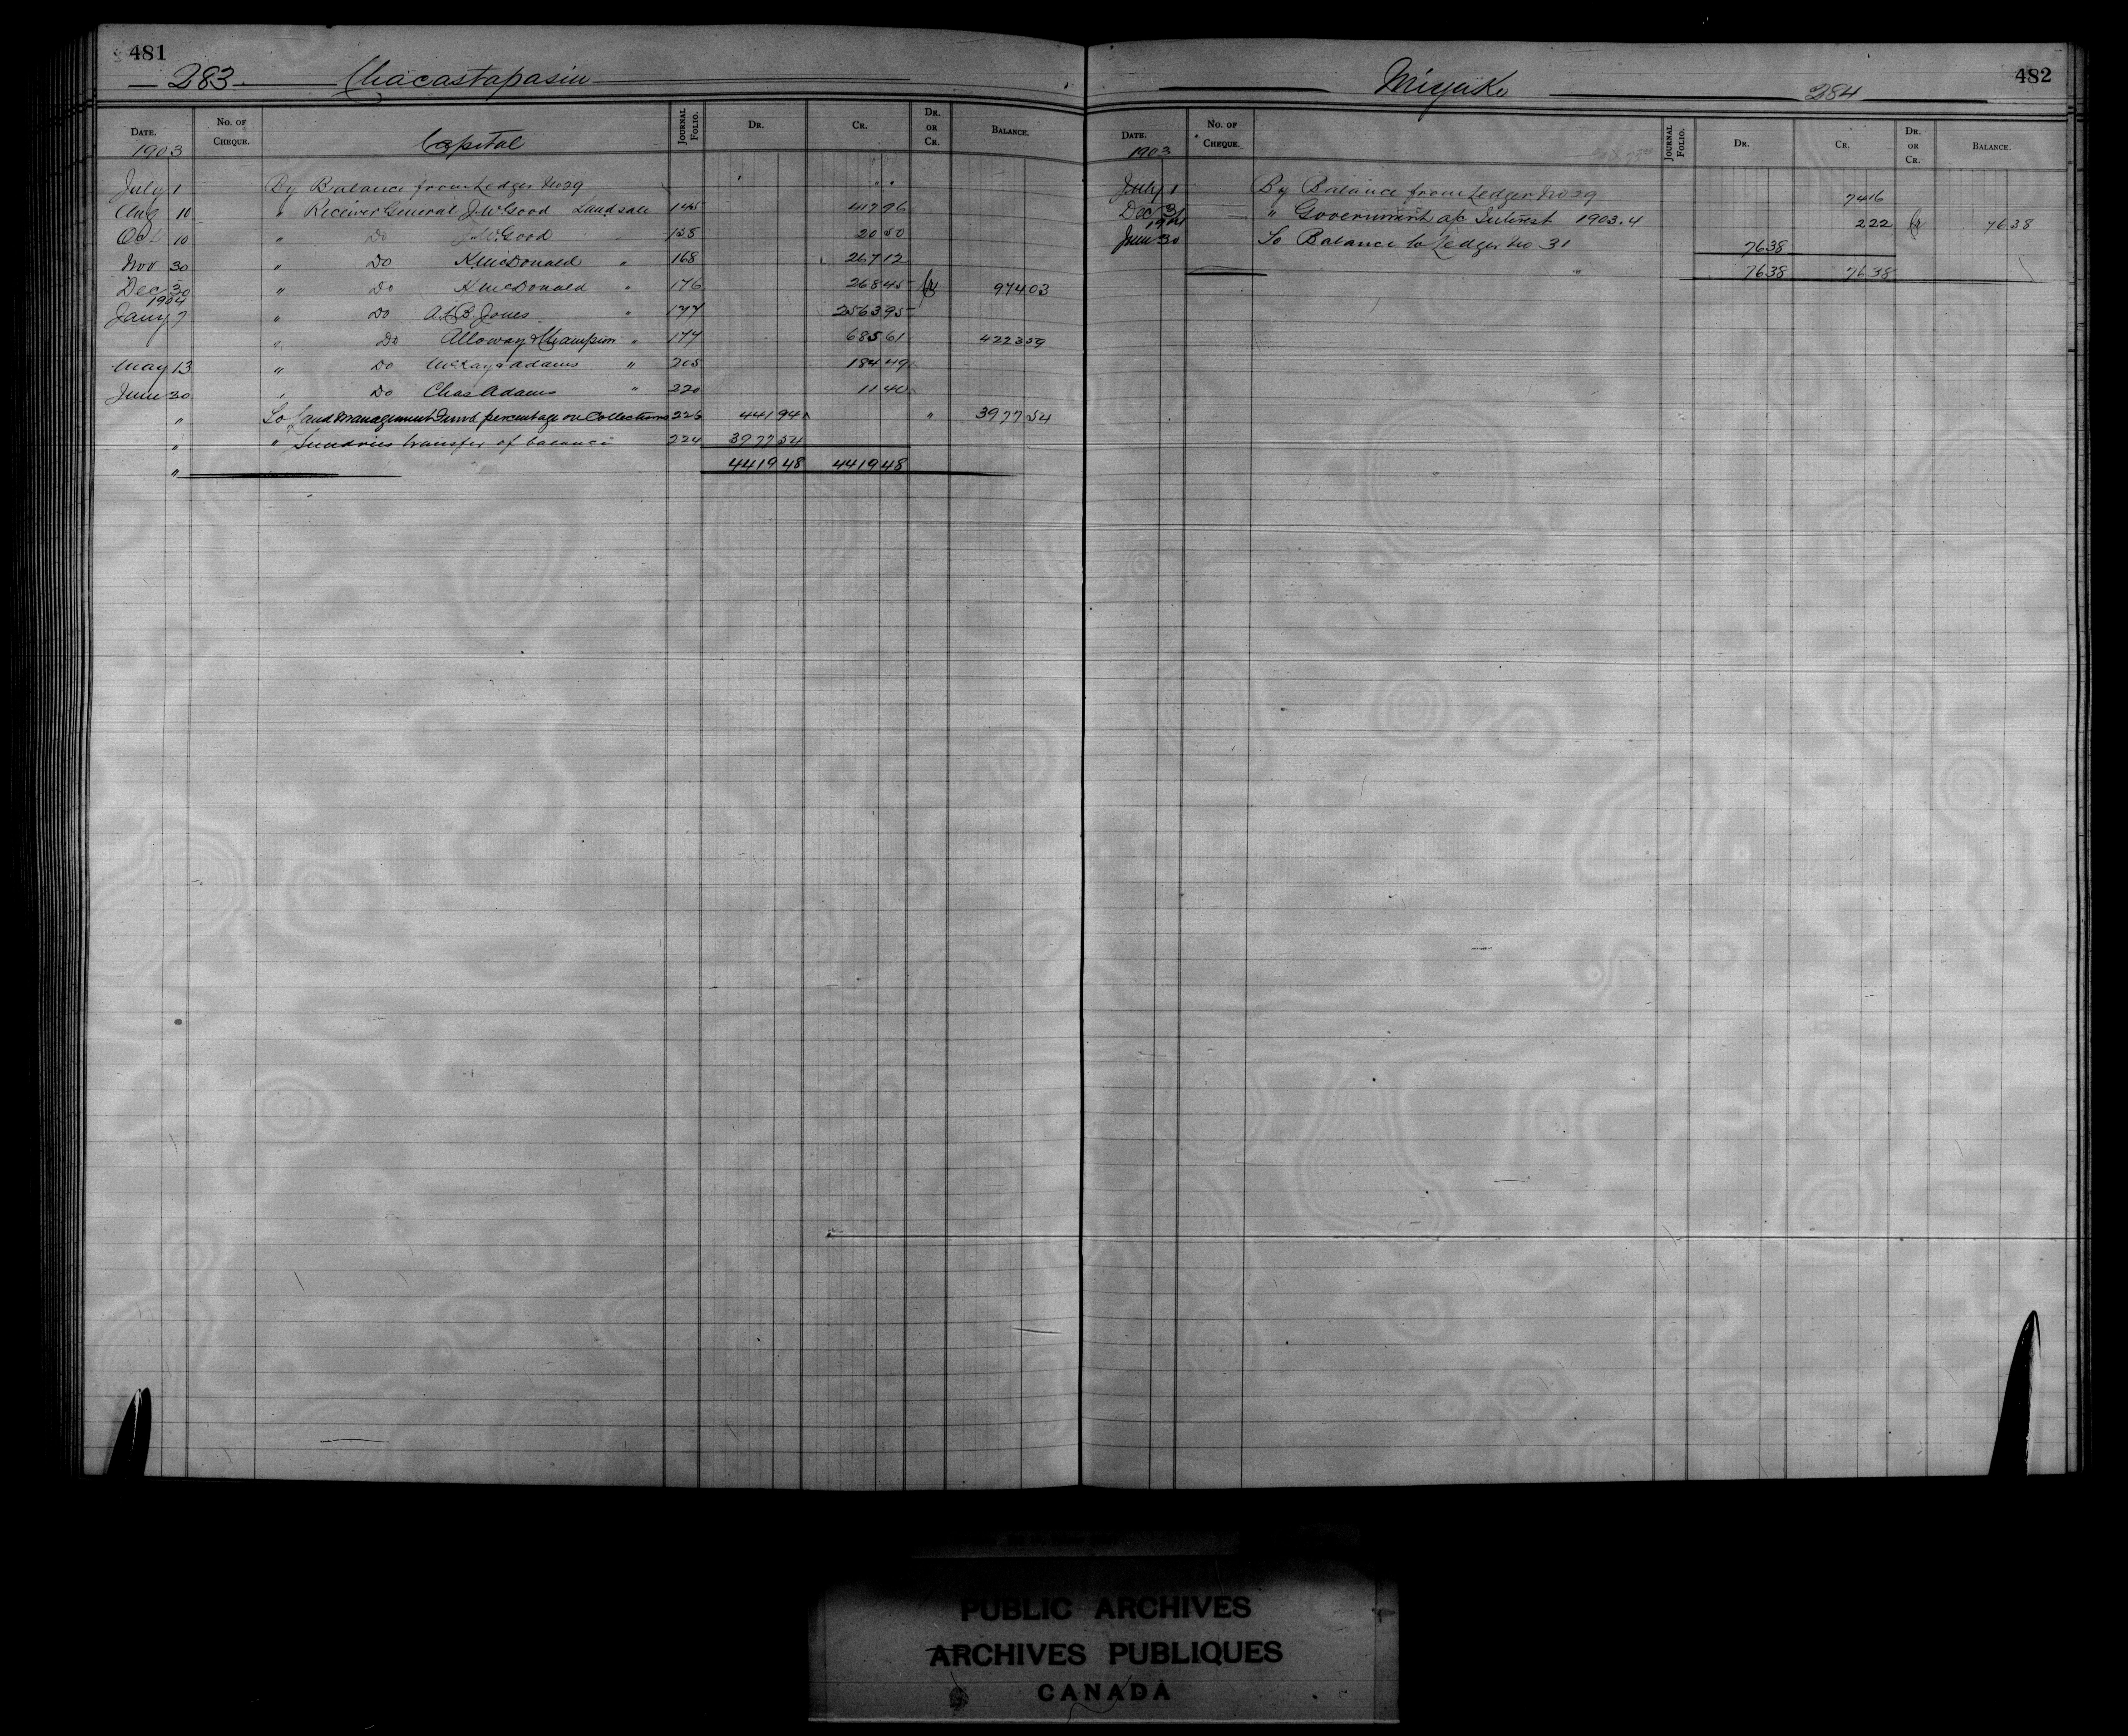 481
283 Chacastapasin
DATE. No. OF CHEQUE. Capital JOURNAL FOLIO. DR. CR. DR. OR CR. BALANCE.
1903
July 1 By Balance from Ledger No 29 " "
Aug 10 " Receiver General J.W. Good Land sale 145 417 96
Oct 10 " Do J.W. Good " 158 20 50
Nov 30 " Do K McDonald " 168 267 12
Dec 30 " Do K McDonald " 176 268 45 Cr 974 03
1904
Jany 7 " Do A.L.B. Jones " 177 2563 95
" Do Alloway & Champion " 177 685 61 4223 59
May 13 " Do McKay & Adams " 205 184 49
June 30 " Do Chas Adams " 220 11 40
" To Land Management Fund percentage on Collections 226 441 94 " 3977 54
" " Sundries transfer of balance 224 3977 54
" 4419 48 4419 48
482
Miyako 284
DATE. No. OF CHEQUE. JOURNAL FOLIO. DR. CR. DR. OR CR. BALANCE.
1903
July 1 By Balance from Ledger No 29 74 16
Dec 31 " Government a/c Interest 1903.4 2 22 Cr 76 38
1904
June 30 To Balance to Ledger No 31 76 38
76 38 76 38
PUBLIC ARCHIVES
ARCHIVES PUBLIQUES
CANADA